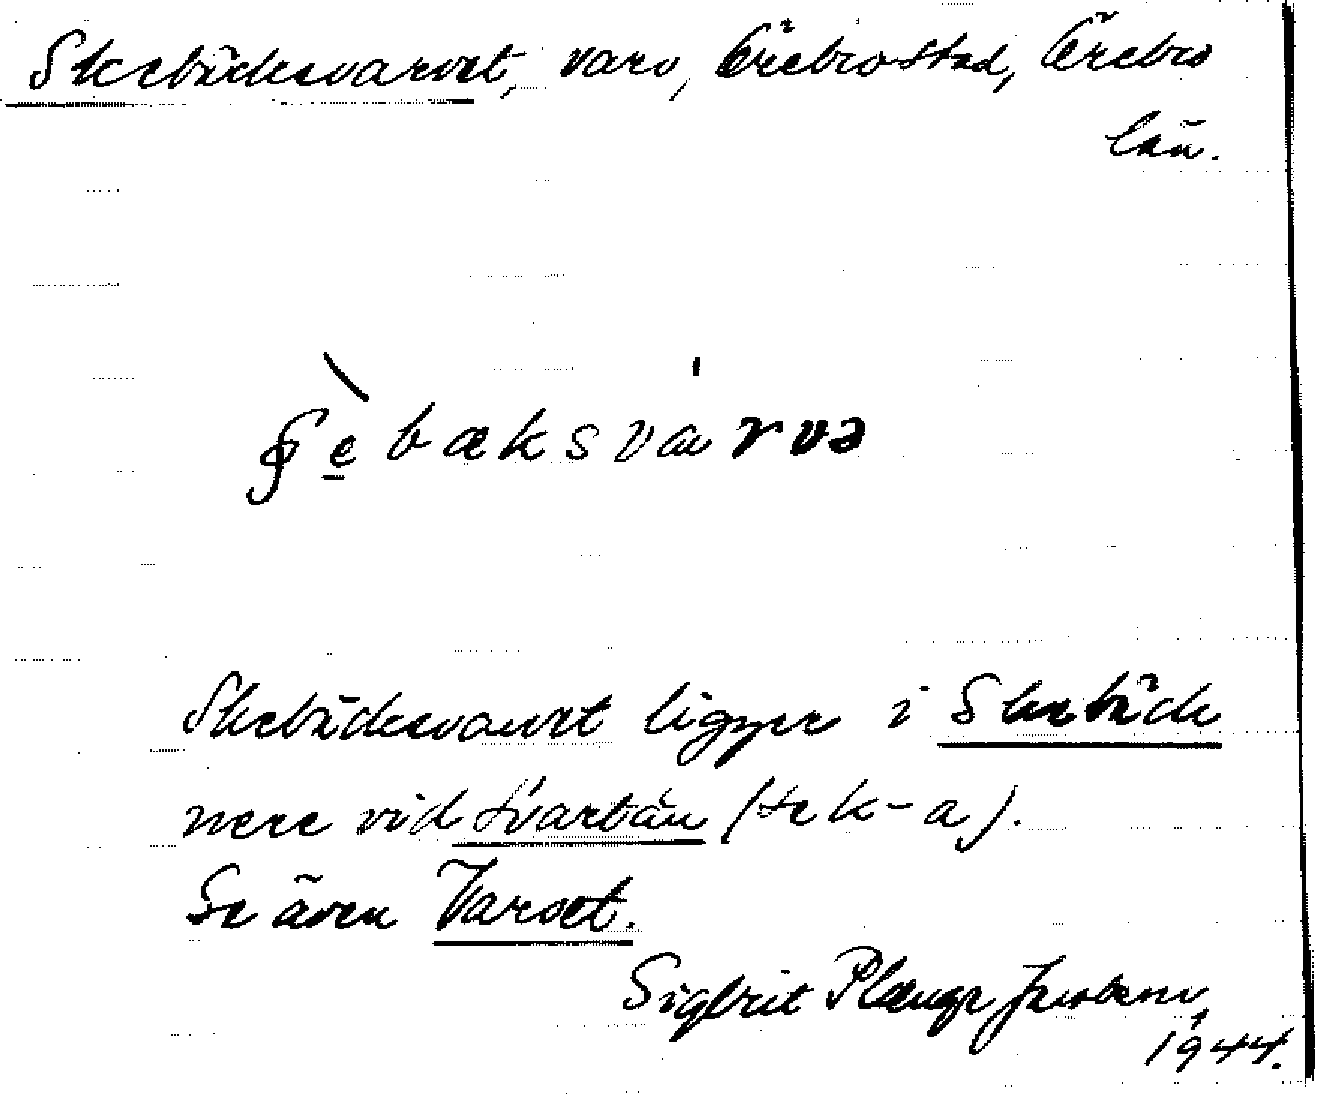 Skebäcksvarvet, varv, Örebro stad, Örebro
län.
ʂèbæksvárvə
Skebäcksvarvet ligger i Skebäck
nere vid Svartån (se k-a).
Se även Varvet.
Sigbrit Plænge Jacobson,
1944.